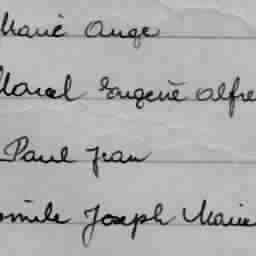 Marie Ange
Marcel Eugène Alfre
Paul Jean
Joseph Marie